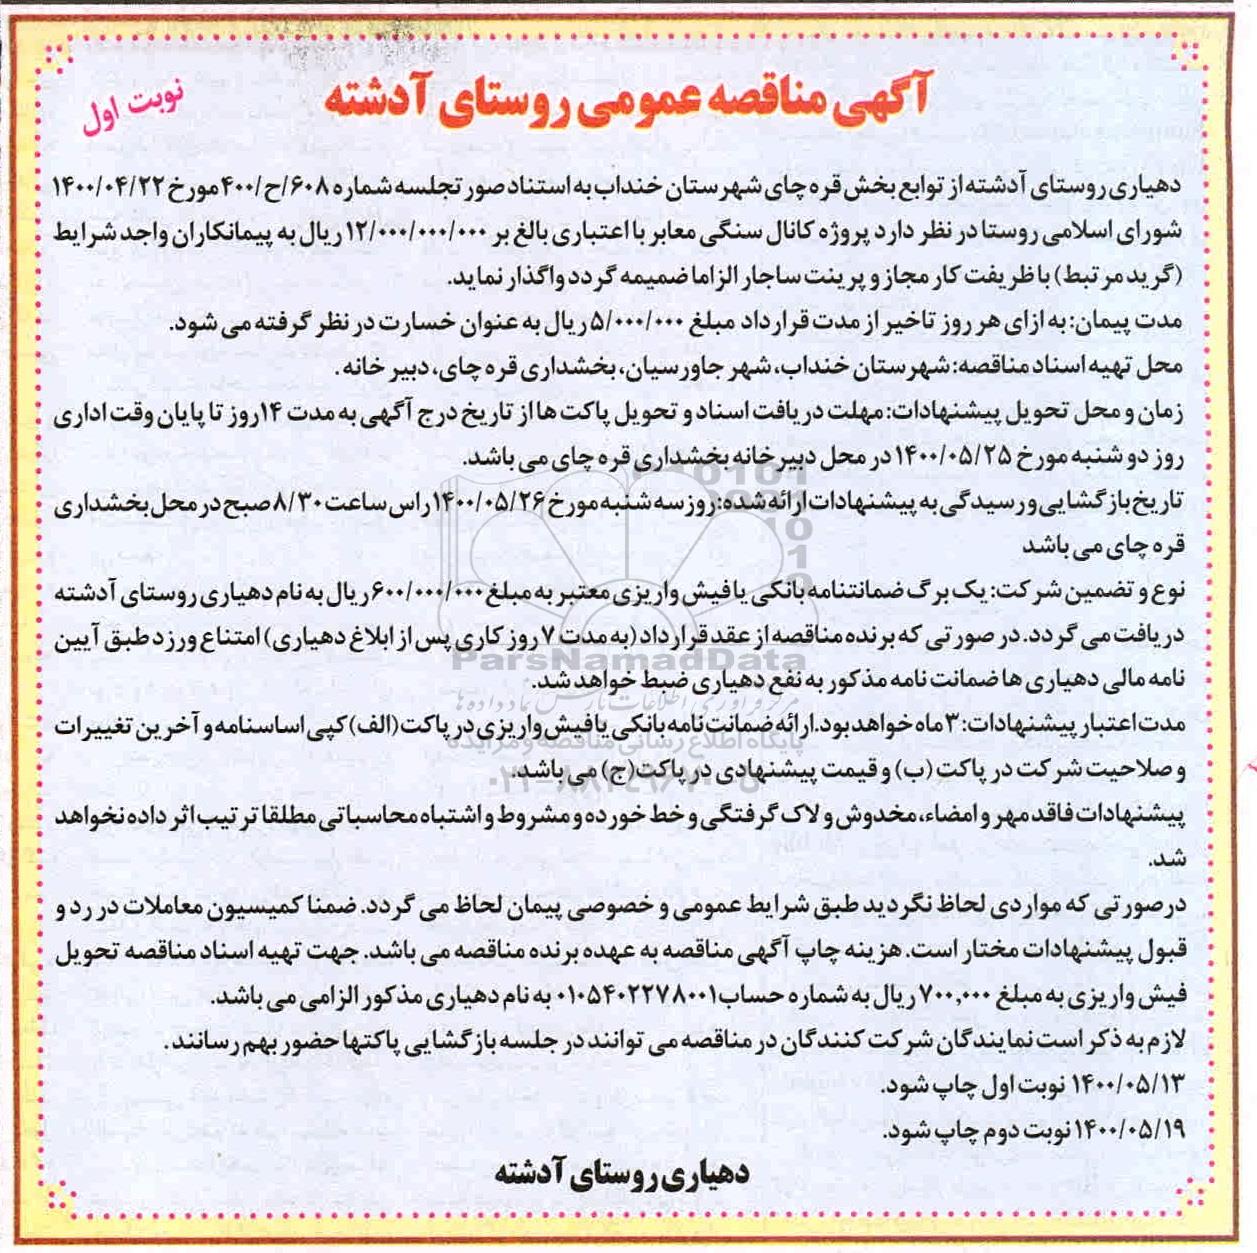 آگهی مناقصه عمومی روستای آدشته
نوبت اول
دهیاری روستای آدشته از توابع بخش قره چای شهرستان خنداب به استناد صورتجلسه شماره ۶۰۸/ح/۴۰۰ مورخ ۱۴۰۰/۰۴/۲۲
شورای اسلامی روستا در نظر دارد پروژه کانال سنگی معابر با اعتباری بالغ بر ۱۲/۰۰۰/۰۰۰/۰۰۰ ریال به پیمانکاران واجد شرایط
(گرید مرتبط) با ظریفت کار مجاز و پرینت ساجار الزاما ضمیمه گردد واگذار نماید.
مدت پیمان: به ازای هر روز تاخیر از مدت قرارداد مبلغ ۵/۰۰۰/۰۰۰ ریال به عنوان خسارت در نظر گرفته می شود.
محل تهیه اسناد مناقصه: شهرستان خنداب، شهر جاورسیان، بخشداری قره چای، دبیر خانه.
زمان و محل تحویل پیشنهادات: مهلت دریافت اسناد و تحویل پاکت ها از تاریخ درج آگهی به مدت ۱۴ روز تا پایان وقت اداری
روز دوشنبه مورخ ۱۴۰۰/۰۵/۲۵ در محل دبیرخانه بخشداری قره چای می باشد.
تاریخ بازگشایی ورسیدگی به پیشنهادات ارائه شده: روز سه شنبه مورخ ۱۴۰۰/۰۵/۲۶ راس ساعت ۸/۳۰ صبح در محل بخشداری
قره چای می باشد
نوع و تضمین شرکت: یک برگ ضمانتنامه بانکی یا فیش واریزی معتبر به مبلغ ۶۰۰/۰۰۰/۰۰۰ ریال به نام دهیاری روستای آدشته
دریافت می گردد. در صورتی که برنده مناقصه از عقد قرارداد (به مدت ۷ روز کاری پس از ابلاغ دهیاری) امتناع ورزد طبق آیین
نامه مالی دهیاری ها ضمانت نامه مذکور به نفع دهیاری ضبط خواهد شد.
مدت اعتبار پیشنهادات: ۳ ماه خواهد بود. ارائه ضمانت نامه بانکی یا فیش واریزی در پاکت (الف) کپی اساسنامه و آخرین تغییرات
و صلاحیت شرکت در پاکت (ب) و قیمت پیشنهادی در پاکت (ج) می باشد.
پیشنهادات فاقد مهر و امضاء، مخدوش و لاک گرفتگی و خط خورده و مشروط و اشتباه محاسباتی مطلقا ترتیب اثر داده نخواهد
شد.
درصورتی که مواردی لحاظ نگردید طبق شرایط عمومی و خصوصی پیمان لحاظ می گردد. ضمنا کمیسیون معاملات در رد و
قبول پیشنهادات مختار است. هزینه چاپ آگهی مناقصه به عهده برنده مناقصه می باشد. جهت تهیه اسناد مناقصه تحویل
فیش واریزی به مبلغ ۷۰۰,۰۰۰ ریال به شماره حساب ۰۱۰۵۴۰۲۲۷۸۰۰۱ به نام دهیاری مذکور الزامی می باشد.
لازم به ذکر است نمایندگان شرکت کنندگان در مناقصه می توانند در جلسه بازگشایی پاکتها حضور بهم رسانند.
۱۴۰۰/۰۵/۱۳ نوبت اول چاپ شود.
۱۴۰۰/۰۵/۱۹ نوبت دوم چاپ شود.
دهیاری روستای آدشته
ParsNamadData
پایگاه اطلاع رسانی مناقصه و مزایده